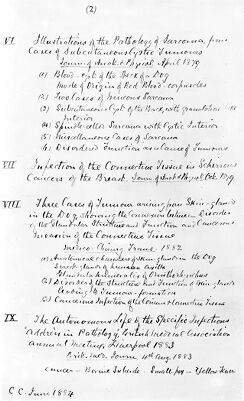 (2)
VI. Illustrations of the Pathology of Sarcoma, from
Cases of Subcutaneous Cystic Tumours
Journ. of Anat. & Physiol. April 1879
(1) Blood-cyst of the Back of a Dog
Mode of Origin of Red Blood-corpuscles
(2) Two cases of Venous Sarcoma
(3) Subcutaneous Cyst of the Back, with granulation-like
Interior
(4) Spindle-celled Sarcoma with Cystic Interior
(5) Miscellaneous Cases of Sarcoma
(6) Disordered Function as a Cause of Tumours
VII Infection of the Connective Tissue in Scirrhous
Cancers of the Breast. Journ. of Anat. & Physiol. Oct. 1879
VIII. Three Cases of Tumours arising from Skin-glands
in the Dog, showing the Connexion between Disorder
of the Glandular Structure and Function, and Cancerous
Invasion of the Connective Tissue
Medico-Chirurg. Trans. 1882
Sweat-glands of human Axilla
(2) Disorders of the Structure and Function of Skin-glands
leading to Tumour-formation
(3) Cancerous Infection of the Connective Tissue
IX. The Autonomous Life of the Specific Infections
Address in Pathology, British Medical Association
Annual Meeting, Liverpool 1883
Brit. Med. Journ. Aug. 1883
Cancer - Bovine Tubercle - Small-pox - Yellow Fever
C. C. June 1884